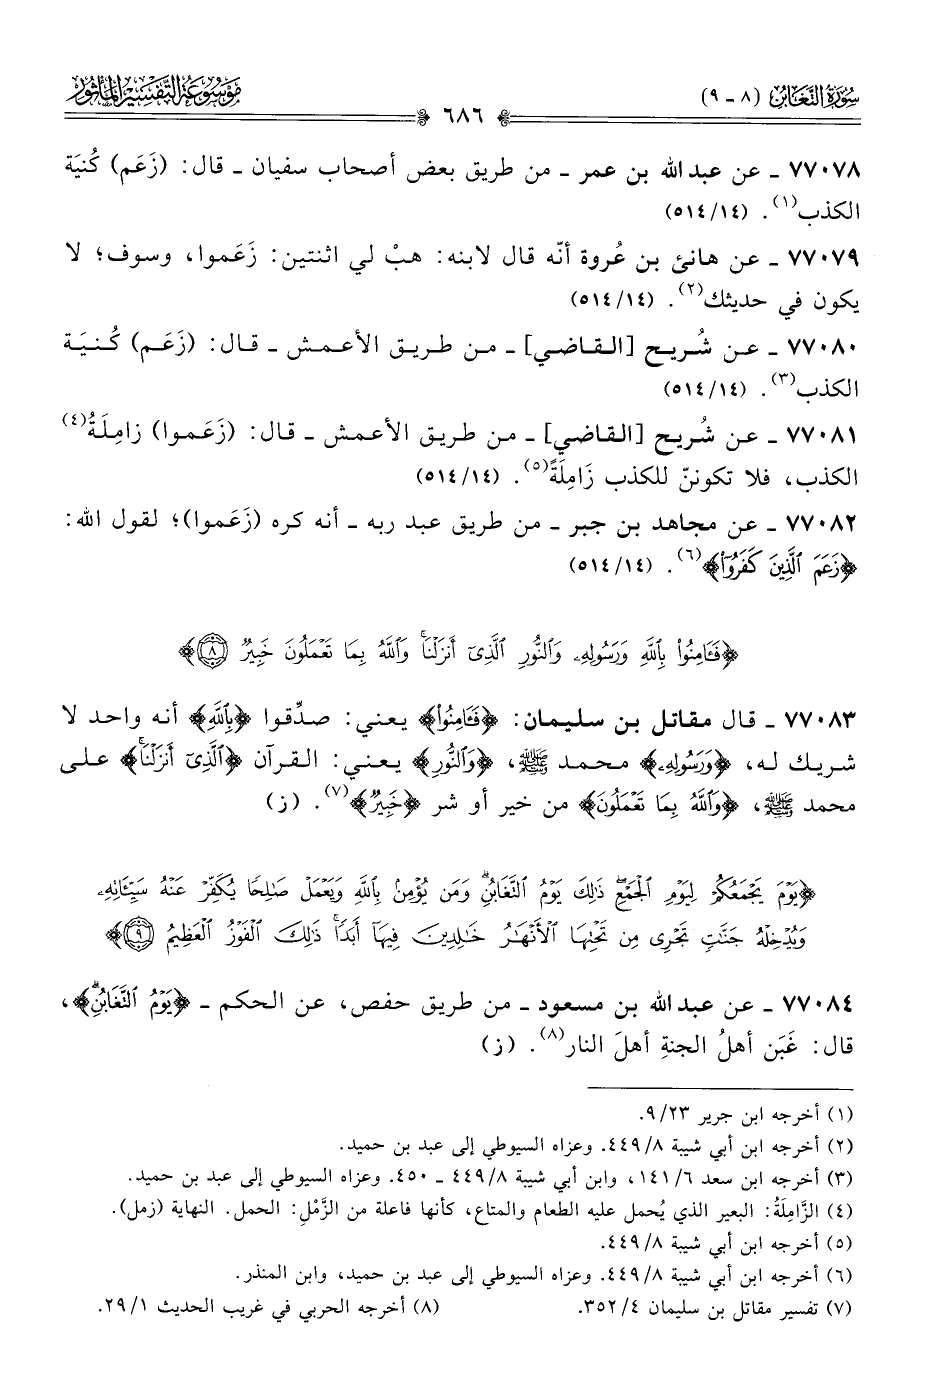 سُورَةُ التَّغَابُنِ (٨ - ٩)
٦٨٦
مَوْسُوعَةُ التَّفْسِيرِ المَأْثُورِ
٧٧٠٧٨ - عن عبد الله بن عمر - من طريق بعض أصحاب سفيان - قال: (زَعَم) كُنيَة
الكذب(١). (١٤/ ٥١٤)
٧٧٠٧٩ - عن هانئ بن عُروة أنّه قال لابنه: هبْ لي اثنتين: زَعَموا، وسوف؛ لا
يكون في حديثك(٢). (١٤/ ٥١٤)
٧٧٠٨٠ - عن شُريح [القاضي] - من طريق الأعمش - قال: (زَعَم) كُنيَة
الكذب(٣). (١٤/ ٥١٤)
٧٧٠٨١ - عن شُريح [القاضي] - من طريق الأعمش - قال: (زَعَموا) زامِلَةُ(٤)
الكذب، فلا تكوننّ للكذب زَامِلَةً(٥). (١٤/ ٥١٤)
٧٧٠٨٢ - عن مجاهد بن جبر - من طريق عبد ربه - أنه كره (زَعَموا)؛ لقول الله:
﴿زَعَمَ ٱلَّذِينَ كَفَرُوٓا۟﴾(٦). (١٤/ ٥١٤)
﴿فَـَٔامِنُوا۟ بِٱللَّهِ وَرَسُولِهِۦ وَٱلنُّورِ ٱلَّذِىٓ أَنزَلْنَا ۚ وَٱللَّهُ بِمَا تَعْمَلُونَ خَبِيرٌ ٨﴾
٧٧٠٨٣ - قال مقاتل بن سليمان: ﴿فَـَٔامِنُوا۟﴾ يعني: صدِّقوا ﴿بِٱللَّهِ﴾ أنه واحد لا
شريك له، ﴿وَرَسُولِهِۦ﴾ محمد ﷺ، ﴿وَٱلنُّورِ﴾ يعني: القرآن ﴿ٱلَّذِىٓ أَنزَلْنَا ۚ﴾ على
محمد ﷺ، ﴿وَٱللَّهُ بِمَا تَعْمَلُونَ﴾ من خير أو شر ﴿خَبِيرٌ﴾(٧). (ز)
﴿يَوْمَ يَجْمَعُكُمْ لِيَوْمِ ٱلْجَمْعِ ۖ ذَٰلِكَ يَوْمُ ٱلتَّغَابُنِ ۗ وَمَن يُؤْمِنۢ بِٱللَّهِ وَيَعْمَلْ صَـٰلِحًا يُكَفِّرْ عَنْهُ سَيِّـَٔاتِهِۦ
وَيُدْخِلْهُ جَنَّـٰتٍ تَجْرِى مِن تَحْتِهَا ٱلْأَنْهَـٰرُ خَـٰلِدِينَ فِيهَآ أَبَدًا ۚ ذَٰلِكَ ٱلْفَوْزُ ٱلْعَظِيمُ ٩﴾
٧٧٠٨٤ - عن عبد الله بن مسعود - من طريق حفص، عن الحكم - ﴿يَوْمُ ٱلتَّغَابُنِ ۗ﴾،
قال: غَبَن أهلُ الجنةِ أهلَ النار(٨). (ز)
(١) أخرجه ابن جرير ٢٣/ ٩.
(٢) أخرجه ابن أبي شيبة ٨/ ٤٤٩. وعزاه السيوطي إلى عبد بن حميد.
(٣) أخرجه ابن سعد ٦/ ١٤١، وابن أبي شيبة ٨/ ٤٤٩ - ٤٥٠. وعزاه السيوطي إلى عبد بن حميد.
(٤) الزَّامِلَةُ: البعير الذي يُحمل عليه الطعام والمتاع، كأنها فاعلة من الزَّمْلِ: الحمل. النهاية (زمل).
(٥) أخرجه ابن أبي شيبة ٨/ ٤٤٩.
(٦) أخرجه ابن أبي شيبة ٨/ ٤٤٩. وعزاه السيوطي إلى عبد بن حميد، وابن المنذر.
(٧) تفسير مقاتل بن سليمان ٤/ ٣٥٢.
(٨) أخرجه الحربي في غريب الحديث ١/ ٢٩.